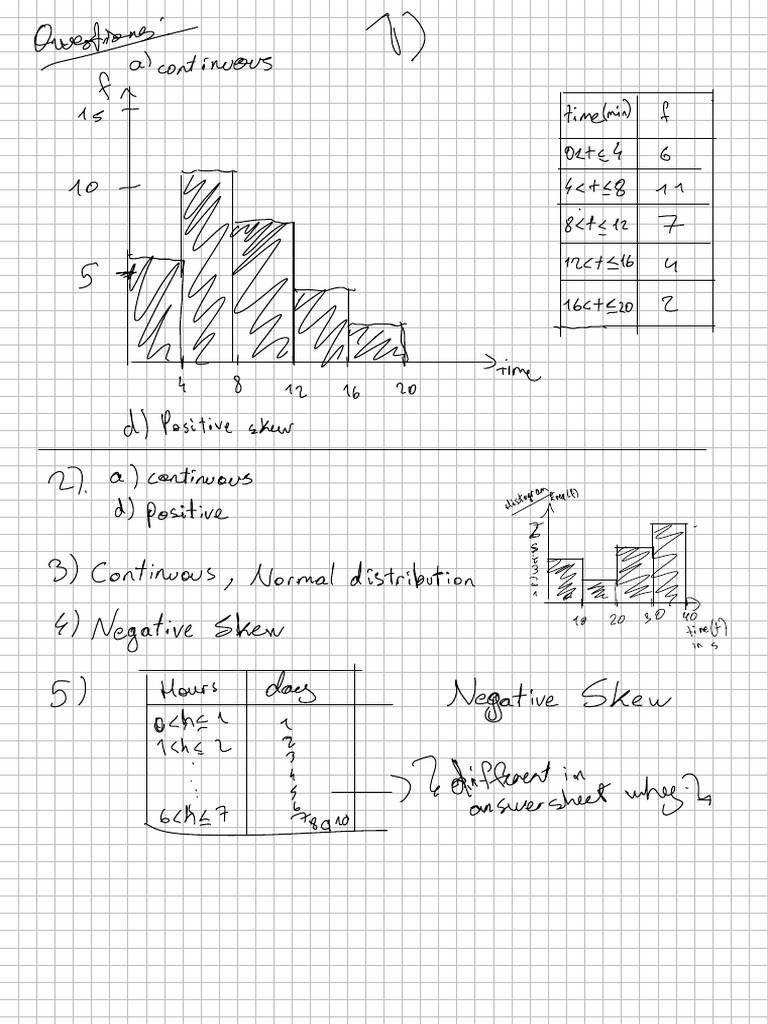 Questions:
1)
a) continuous
f
15
10
5
4 8 12 16 20
time
time(min) f
0<t≤4 6
4<t≤8 11
8<t≤12 7
12<t≤16 4
16<t≤20 2
d) Positive skew
2). a) continuous
d) positive
3) Continuous, Normal distribution
4) Negative Skew
5
4
3
2
1
10 20 30 40
time(t)
in s
5)
Hours days
0<h≤1 1
1<h≤2 2
: 3
4
: 5
6
6<h≤7 7 8 9 10
Negative Skew
different in
answersheet why?